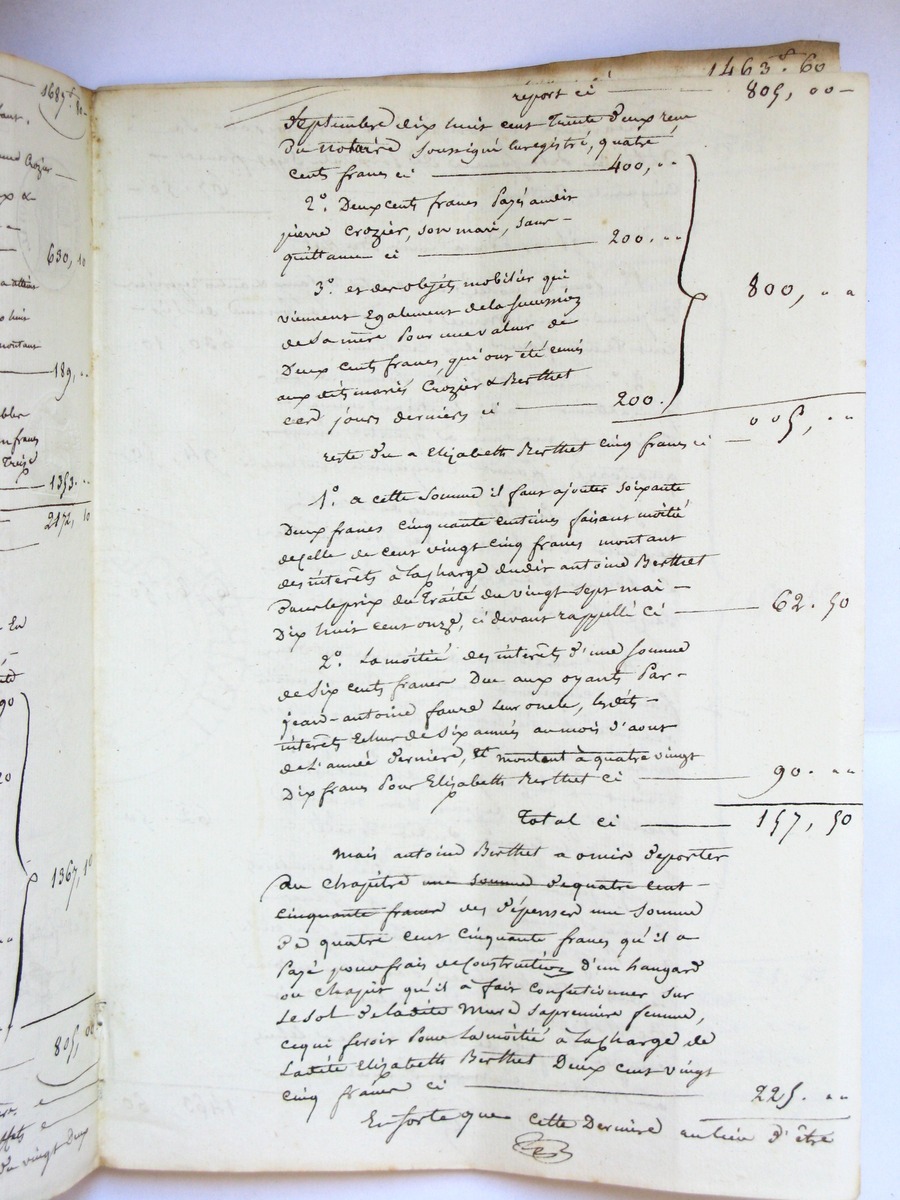 1463f. 60
report ci 805, 00
Septembre dix huit cent trente deux reçu
du notaire soussigné Enregistré, quatre
cents francs ci 400, "
2o. Deux cents francs payés audit
pierre Crozier, son mari, sans
quittance ci 200. "
3o. et des objets mobilier qui
viennent Egalement de la succession
de sa mère pour une valeur de
Deux cents francs, qui ont été remis
aux dits mariés Crozier & Berthet
ces jours derniers ci 200.
800, "
reste du a Elizabeth Berthet cinq francs ci 005, "
1o. a cette somme il faut ajouter soixante
Deux francs cinquante centimes faisant moitié
de celle de cent vingt cinq francs montant
des intérêts à la charge dudit antoine Berthet
pour le prix du traité du vingt sept mai
Dix huit cent onze, ci devant rappellé ci 62. 50
2o. La moitié des interêts d'une somme
de six cents francs Due aux oyants par
jean-antoine faure leur oncle, les dits
intérêts Echus de six années au mois d'aout
de l'année dernière, Et montent à quatre vingt
Dix francs pour Elizabeth Berthet ci 90. "
Total ci 157, 50
mais antoine Berthet a omis de porter
au chapitre une somme de quatre cent
cinquante francs des dépenses une somme
de quatre cent cinquante francs qu'il a
payé pour frais de Construction d'un hangard
ou chapit qu'il a fait confectionner sur
Le sol de ladite Mure sa premiere femme,
ce qui feroit pour la moitié à la charge de
Ladite Elizabeth Berthet Deux cent vingt
cinq francs ci 225. "
En sorte que cette Derniere au lieu d'être
1687f. 80
Crozier
630, 10
189, "
francs
treize
1353. "
2172, 10
90
20
1367, 10
805, 00
du vingt Deux